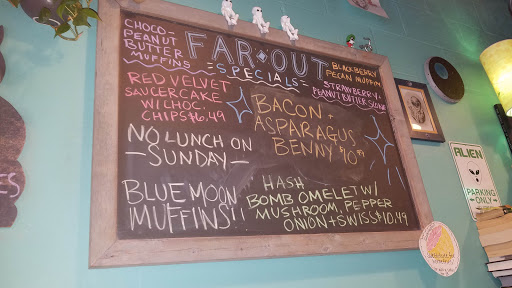 CHOCO-
PEANUT
BUTTER
MUFFINS
FAR OUT
SPECIALS
BLACKBERRY
PECAN MUFFIN
STRAWBERRY +
PEANUT BUTTER
RED VELVET
SAUCERCAKE
W/CHOC.
CHIPS $6.49
BACON +
ASPARAGUS
BENNY
NO LUNCH ON
-SUNDAY-
BLUE MOON
MUFFINS!!
HASH
BOMB OMELET W/
MUSHROOM, PEPPER
ONION + SWISS $10.49
ALIEN
PARKING
ONLY
ES